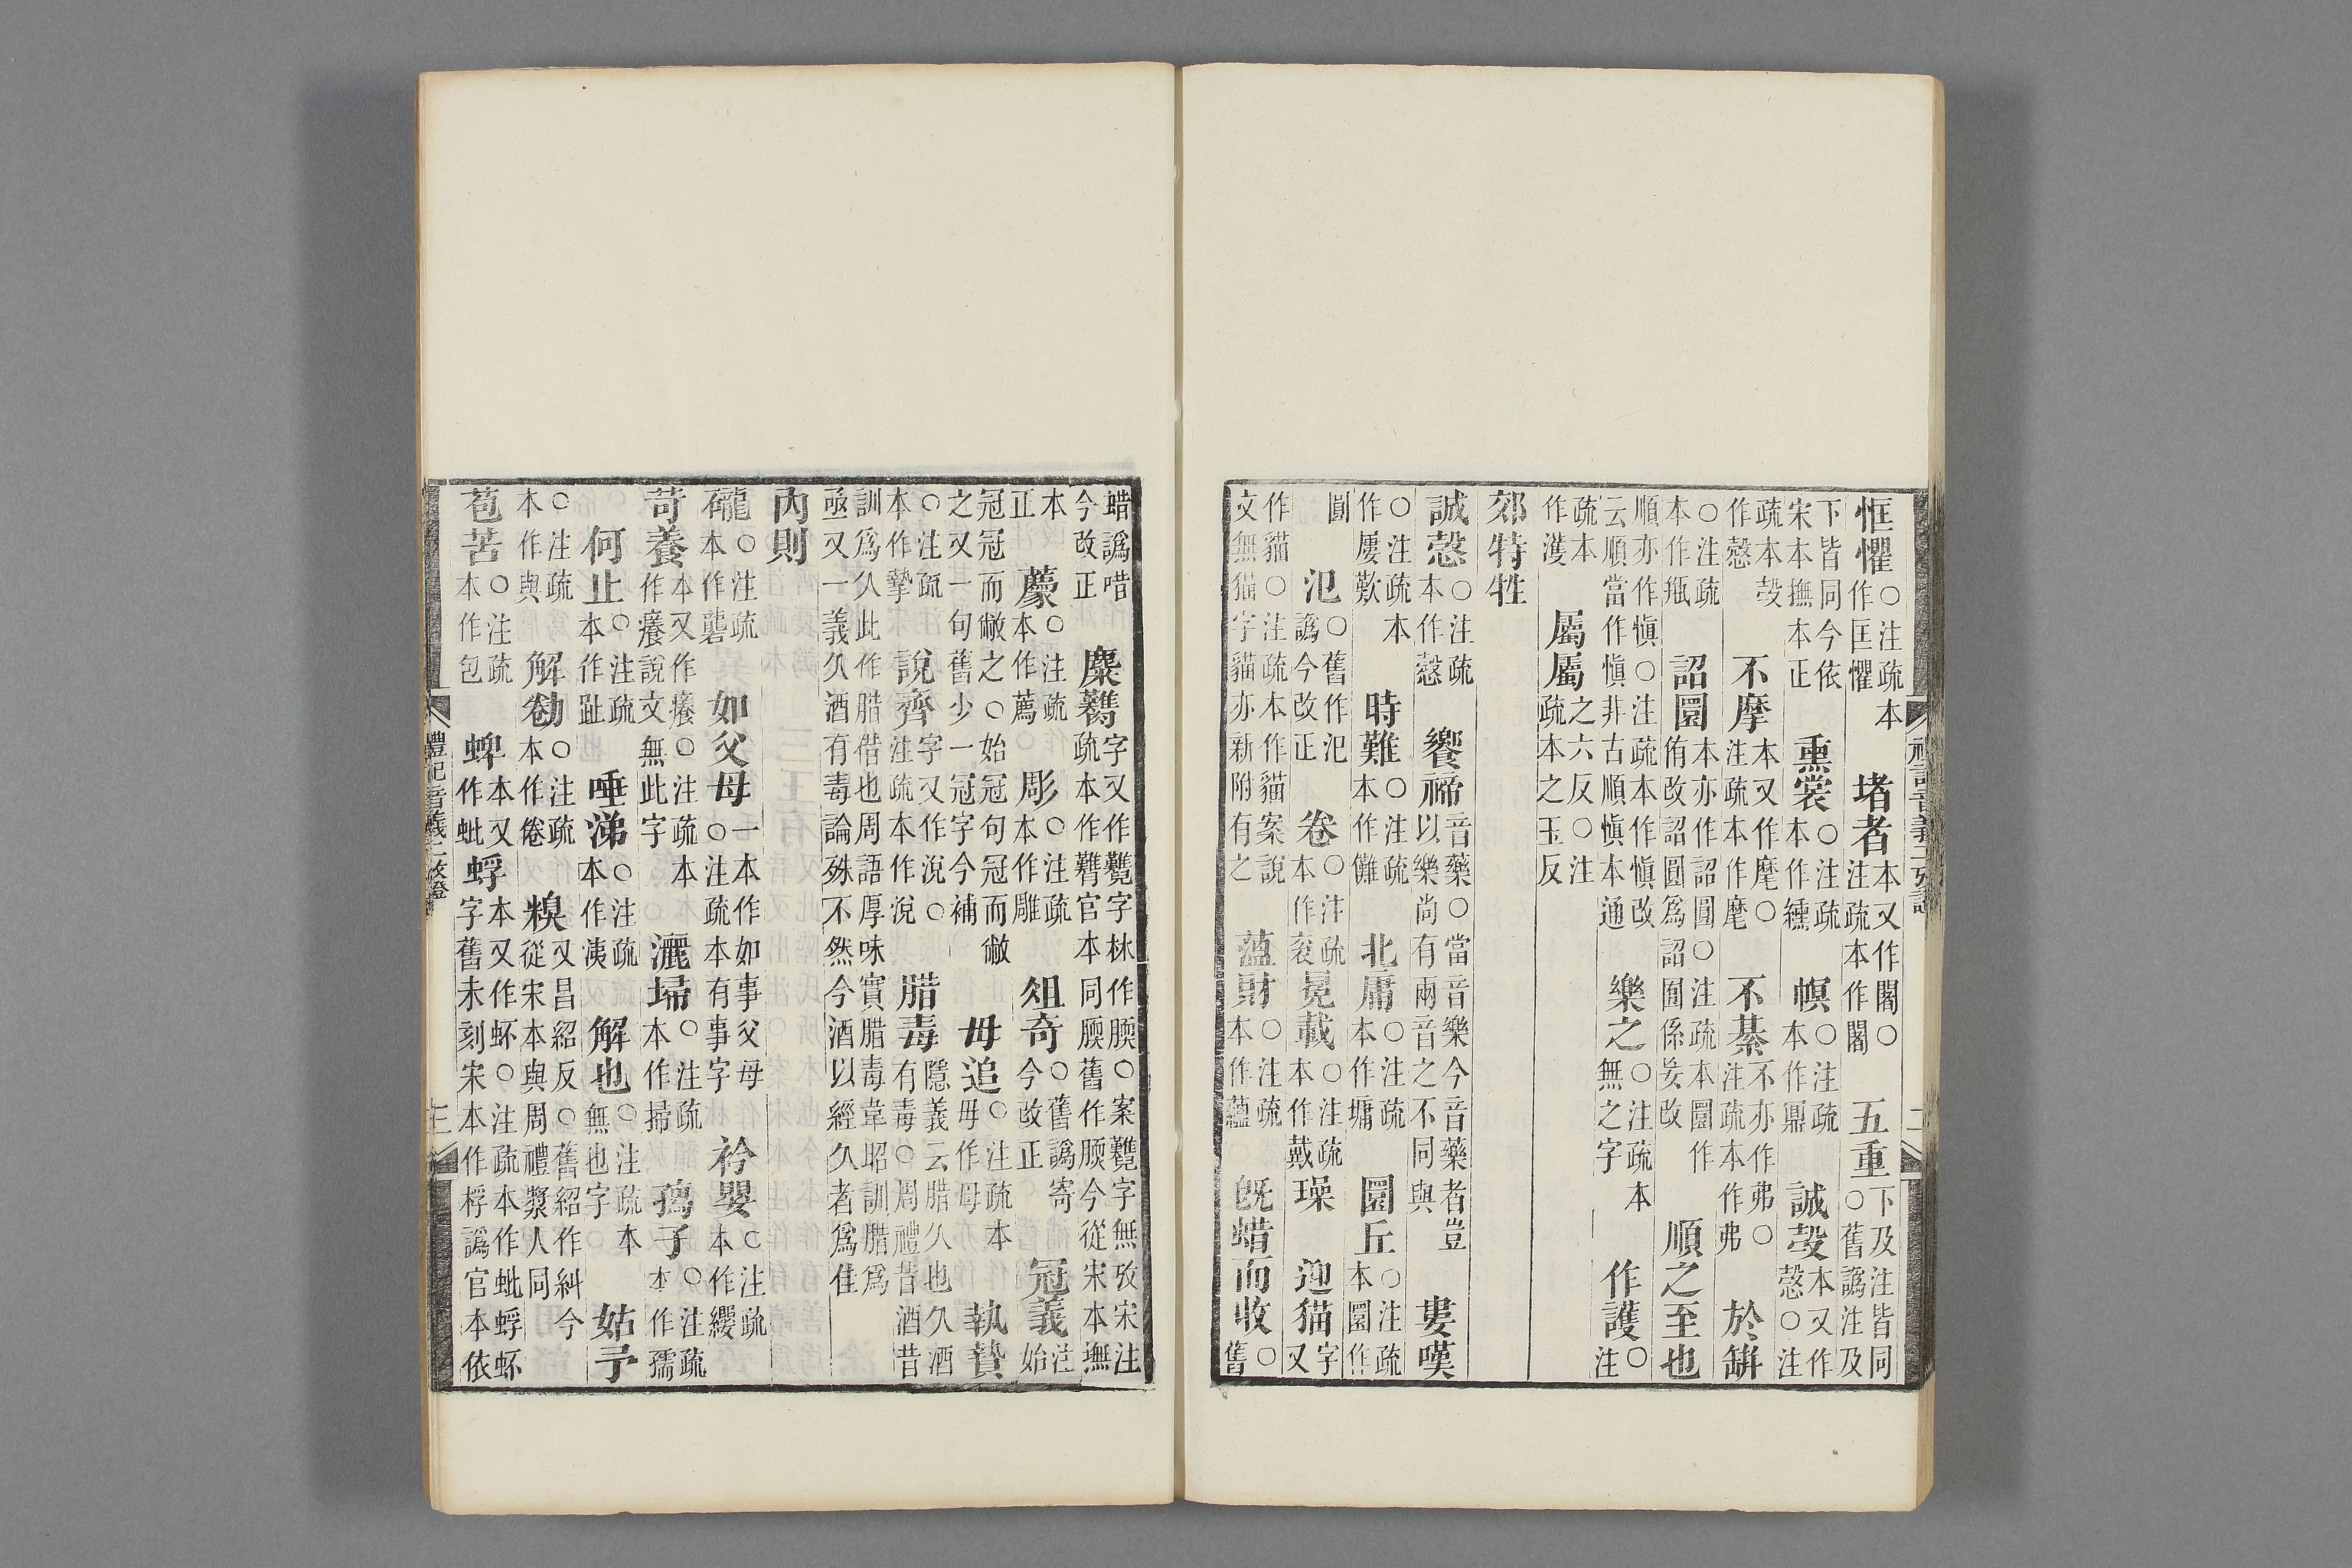 恇懼○注疏本作匡懼 堵者本又作闍○注疏本作闍 五重下及注皆同○舊譌注及
下皆同今依宋本撫本正 熏裳○注疏本作纁 幎○注疏本作鼏 誠㱿本又作慤○注
疏本㱿作慤 不摩本又作麾○注疏本作麾 不綦不亦作弗○注疏本作弗 於缾
○注疏本作瓶 詔圜本亦作詔圓○注疏本圜作侑改詔圓爲詔囿係妄改 順之至也
順亦作愼○注疏本作愼改云順當作愼非古順愼本通 樂之○注疏本無之字 作護○注
疏本作濩 屬屬之六反○注疏本之玉反
郊特牲
誠慤○注疏本作慤 饗禘音藥○當音樂今音藥者豈以樂尚有兩音之不同與 婁嘆
○注疏本作屢歎 時難○注疏本作儺 北庸○注疏本作墉 圜丘○注疏本圜作
圓 氾○舊作汜譌今改正 卷○注疏本作衮 冕載○注疏本作戴 璪 迎猫字又
作貓○注疏本作貓案說文無猫字貓亦新附有之 薀財○注疏本作蘊 旣蜡而收○舊
蜡譌唶今改正 麋臡字又作䡝字林作腝○案䡝字無攷宋注疏本作臡官本同腝舊作腝今從宋本撫
本正 藨○注疏本作薦 彫○注疏本作雕 俎奇○舊譌寄今改正 冠義注始
冠冠而敝之○始冠句冠而敝之又一句舊少一冠字今補 毋追○注疏本毋作母 執贄
○注疏本作摯 說齊字又作涗○注疏本作涗 腊毒隱義云腊久也久酒有毒○周禮昔酒昔
訓爲久此作腊借也周語厚味實腊毒韋昭訓腊爲亟又一義久酒有毒論殊不然今酒以經久者爲佳
內則
礲○注疏本作礱 如父母一本作如事父母○注疏本有事字 衿嬰○注疏本作纓
苛養本又作癢○注疏本作癢說文無此字 灑埽○注疏本作掃 㺉子○注疏本作孺
何止○注疏本作趾 唾涕○注疏本作洟 解也○注疏本無也字 姑予
○注疏本作與 解勌○注疏本作倦 糗又昌紹反○舊紹作糾今從宋本與周禮漿人同
苞苦○注疏本作包 蜱本又作蚍 蜉本又作蚥○注疏本作蚍蜉蚥字舊未刻宋本作桴譌官本依
禮記音義二攷證
禮記音義二攷證